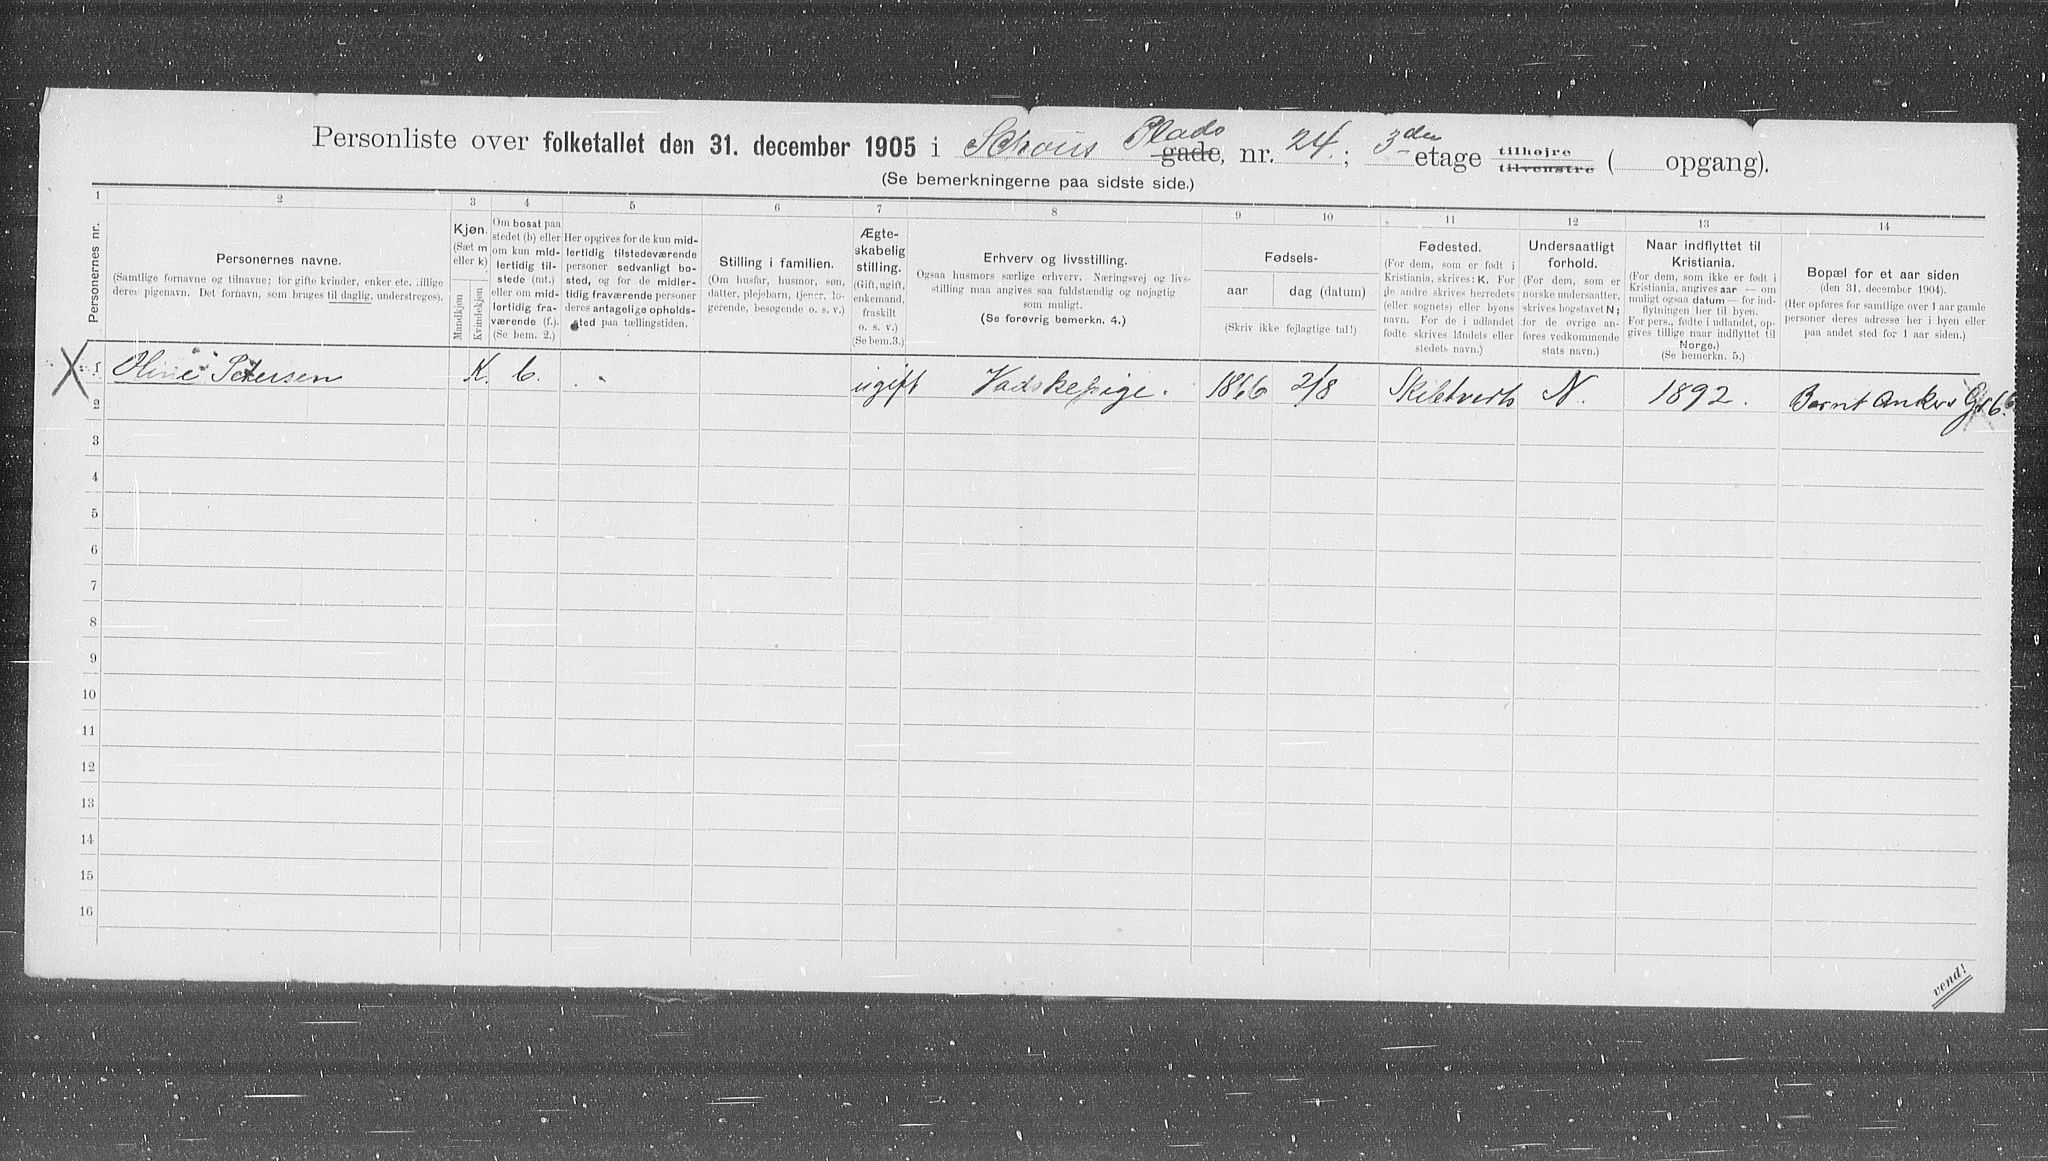 Personliste over folketallet den 31. december 1905 i Schous Plads gade, nr. 24.; 3den etage tilhøjre tilvenstre ( opgang).
(Se bemerkningerne paa sidste side.)
1 2 3 4 5 6 7 8 9 10 11 12 13 14
Personernes nr.
Personernes navne.
(Samtlige fornavne og tilnavne; for gifte kvinder, enker etc. tillige
deres pigenavn. Det fornavn, som bruges til daglig, understreges).
Kjøn.
(Sæt m
eller k)
Mandkjøn
Kvindekjøn
Om bosat paa
stedet (b) eller
om kun mid-
lertidig til-
stede (mt.)
eller om mid-
lertidig fra-
værende (f.).
(Se bem. 2.)
Her opgives for de kun mid-
lertidig tilstedeværende
personer sedvanligt bo-
sted, og for de midler-
tidig fraværende personer
deres antagelige opholds-
sted paa tællingstiden.
Stilling i familien.
(Om husfar, husmor, søn,
datter, plejebarn, tjener, lo-
gerende, besøgende o. s. v.)
Ægte-
skabelig
stilling.
(Gift, ugift,
enkemand,
fraskilt
o. s. v.)
(Se bem.3.)
Erhverv og livsstilling.
Ogsaa husmors særlige erhverv. Næringsvej og livs-
stilling maa angives saa fuldstændig og nøjagtig
som muligt.
(Se forøvrig bemerkn. 4.)
Fødsels-
aar
dag (datum)
(Skriv ikke fejlagtige tal!)
Fødested.
(For dem, som er født i
Kristiania, skrives: K. For
de andre skrives herredets
(eller sognets) eller byens
navn. For de i udlandet
fødte skrives landets eller
stedets navn.)
Undersaatligt
forhold.
(For dem, som er
norske undersaatter,
skrives bogstavet N;
for de øvrige an-
føres vedkommende
stats navn.)
Naar indflyttet til
Kristiania.
(For dem, som ikke er født i
Kristiania, angives aar — om
muligt ogsaa datum — for ind-
flytningen her til byen.
For pers., fødte i udlandet, op-
gives tillige naar indflyttet til
Norge.)
(Se bemerkn. 5.)
Bopæl for et aar siden
(den 31. december 1904).
(Her opføres for samtlige over 1 aar gamle
personer deres adresse her i byen eller
paa andet sted for 1 aar siden.)
X 1 Oline Petersen K. b. ugift Vadskepige. 1866 2/8 N. 1892. Bernt Ankers G 6
2
3
4
5
6
7
8
9
10
11
12
13
14
15
16
vend!